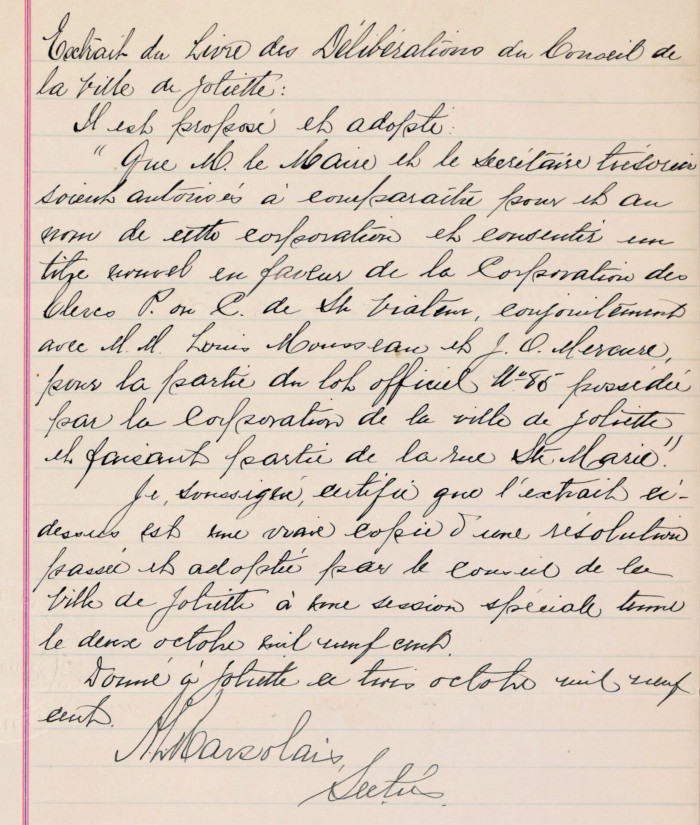 Extrait du Livre des Délibérations du Conseil de
la ville de Joliette:
Il est proposé et adopté:
"Que M. le Maire et le secrétaire trésorier
soient autorisés à comparaître pour et au
nom de cette corporation et consentir un
titre nouvel en faveur de la Corporation des
Clercs P. ou C. de St Viateur, conjointement
avec M.M. Louis Mousseau et J. O. Mercure,
pour la partie du lot officiel No 85 possédée
par la Corporation de la ville de Joliette
et faisant partie de la rue Ste Marie."
Je, soussigné, certifie que l'extrait ci-
dessus est une vraie copie d'une résolution
passée et adoptée par le conseil de la
Ville de Joliette à une session spéciale tenue
le deux octobre mil neuf cent.
Donné à Joliette ce trois octobre mil neuf
cent.
Marsolais,